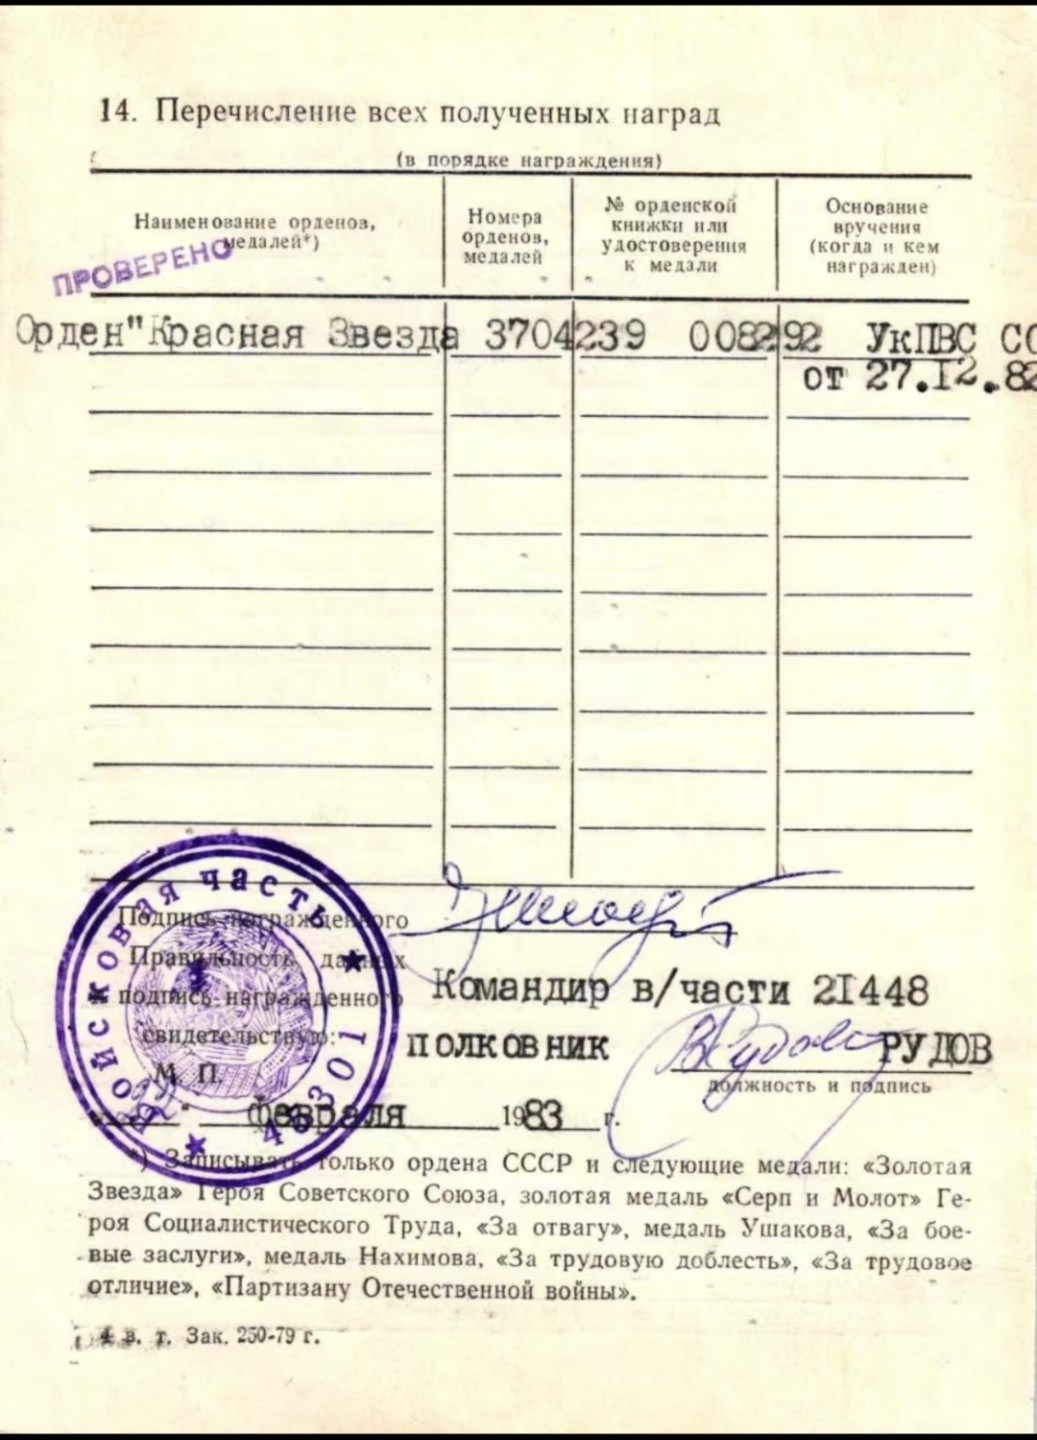 14. Перечисление всех полученных наград
(в порядке награждения)
Наименование орденов, медалей*)
Номера орденов, медалей
№ орденской книжки или удостоверения к медали
Основание вручения (когда и кем награжден)
ПРОВЕРЕНО
Орден"Красная Звезда 3704239 008292 УкПВС СС
от 27.I2.82
Подпись награжденного
Правильность данных
и подпись награжденного
свидетельствую:
М. П.
Командир в/части 2I448
полковник РУДОВ
должность и подпись
февраля 1983 г.
Войсковая часть
*) Записывать только ордена СССР и следующие медали: «Золотая
Звезда» Героя Советского Союза, золотая медаль «Серп и Молот» Ге-
роя Социалистического Труда, «За отвагу», медаль Ушакова, «За бое-
вые заслуги», медаль Нахимова, «За трудовую доблесть», «За трудовое
отличие», «Партизану Отечественной войны».
4 в. т. Зак. 250-79 г.